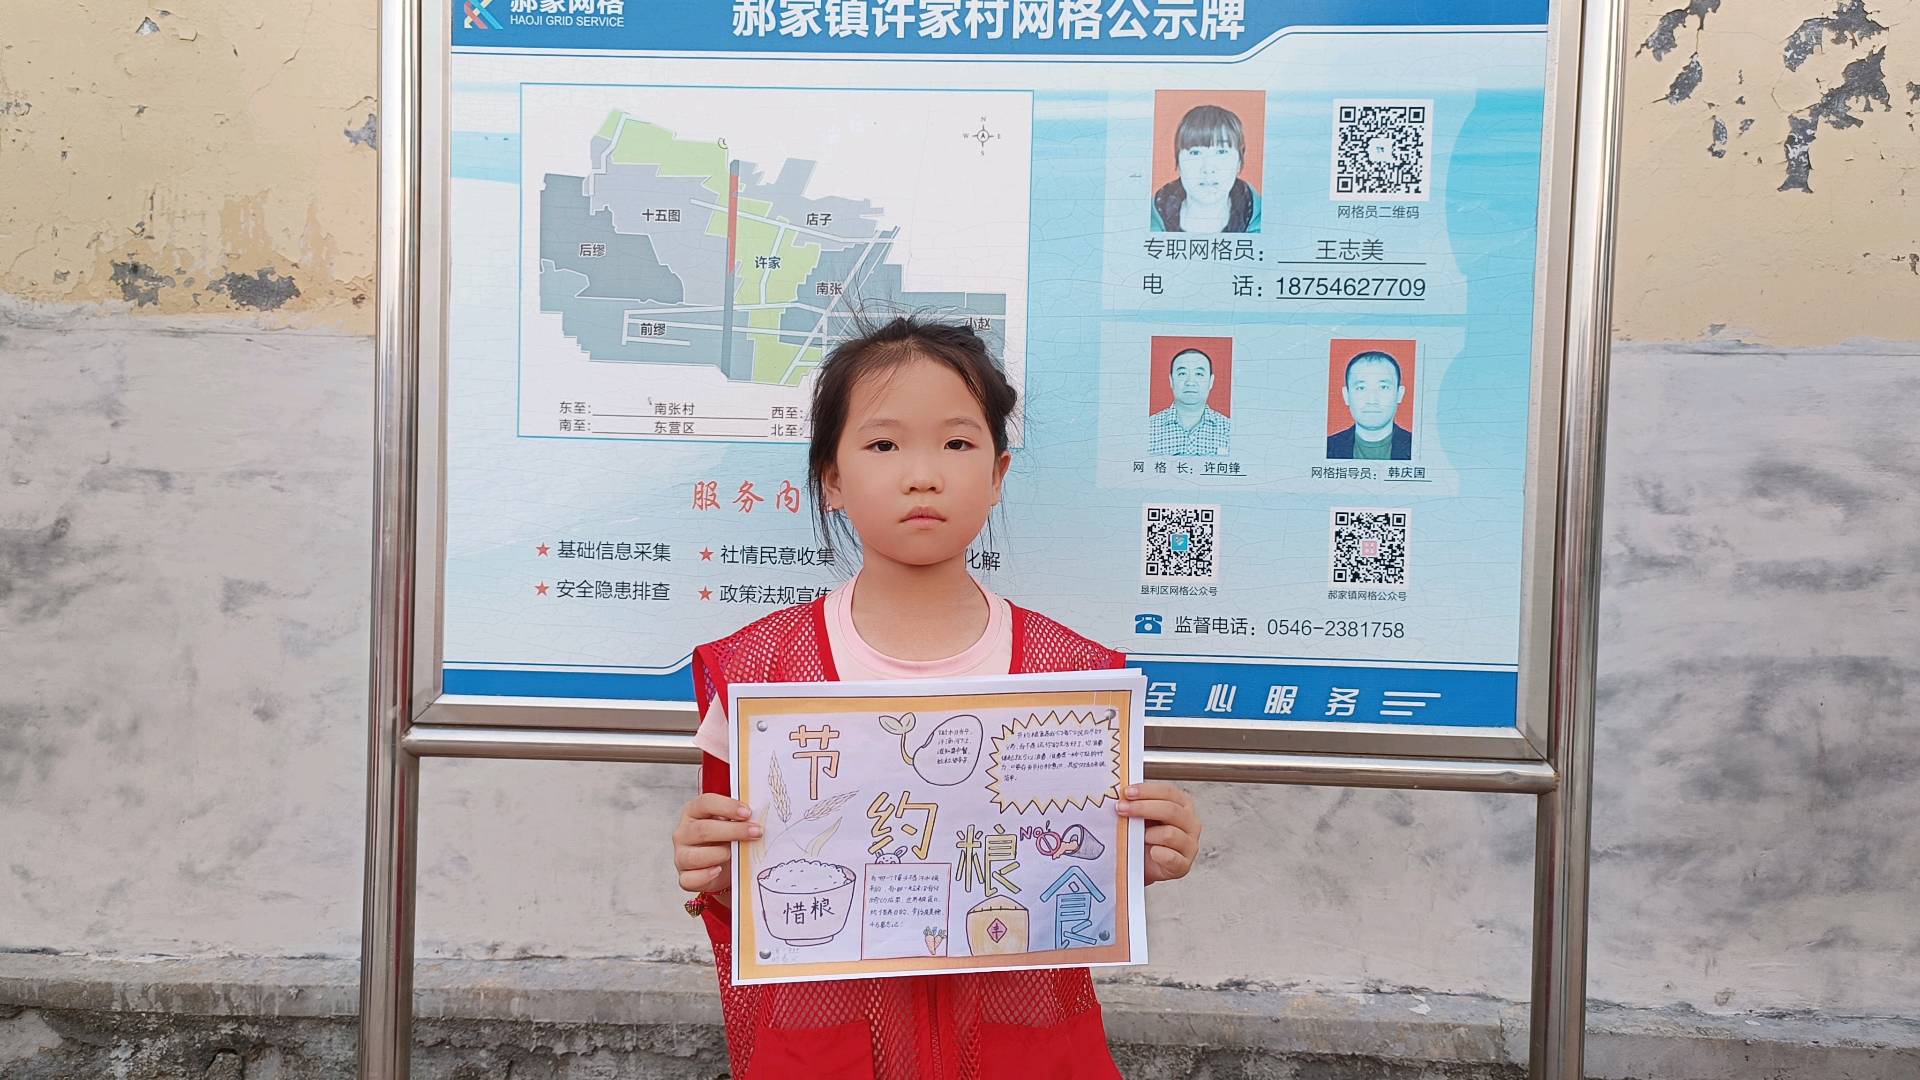 郝家网格
HAOJI GRID SERVICE
郝家镇许家村网格公示牌
N
W A E
S
十五图
店子
后缪
许家
南张
前缪
小赵
东至: 南张村 西至:
南至: 东营区 北至:
网格员二维码
专职网格员: 王志美
电 话: 18754627709
网 格 长: 许向锋
网格指导员: 韩庆国
服务内
★ 基础信息采集 ★ 社情民意收集 化解
★ 安全隐患排查 ★ 政策法规宣传
垦利区网格公众号
郝家镇网格公众号
监督电话: 0546-2381758
全心服务
节
约
粮
食
锄禾日当午,
汗滴禾下土,
谁知盘中餐,
粒粒皆辛苦.
NO
惜粮
丰